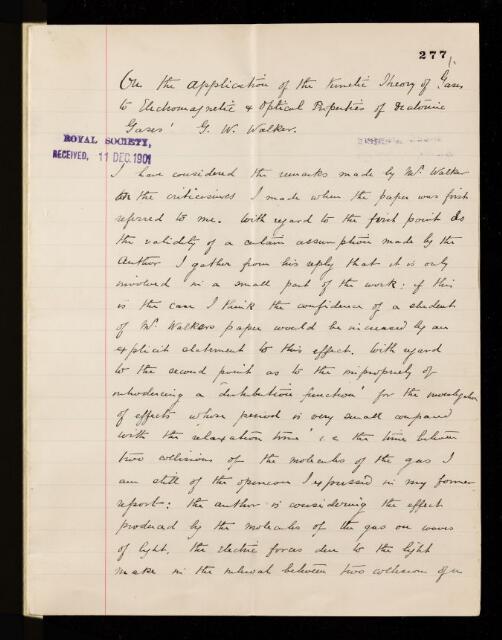 277
1.
On the application of the Kinetic Theory of Gases
to Electromagnetic & Optical Properties of Diatomic
Gases' G. W. Walker.
ROYAL SOCIETY,
RECEIVED, 11 DEC. 1901
I have considered the remarks made by Mr. Walker
on the criticisms I made when the paper was first
referred to me. With regard to the first point as
the validity of a certain assumption made by the
Author I gather from his reply that it is only
involved in a small part of the work: if this
is the case I think the confidence of a student
of Mr. Walkers paper would be increased by an
explicit statement to this effect. With regard
to the second point as to the impropriety of
introducing a 'distribution function' for the investigation
of effects whose period is very small compared
with the 'relaxation time' i.e the time between
two collisions of the molecules of the gas I
am still of the opinion I expressed in my former
report: the author is considering the effect
produced by the molecules of the gas on waves
of light. the electric forces due to the light
make in the interval between two collision of a